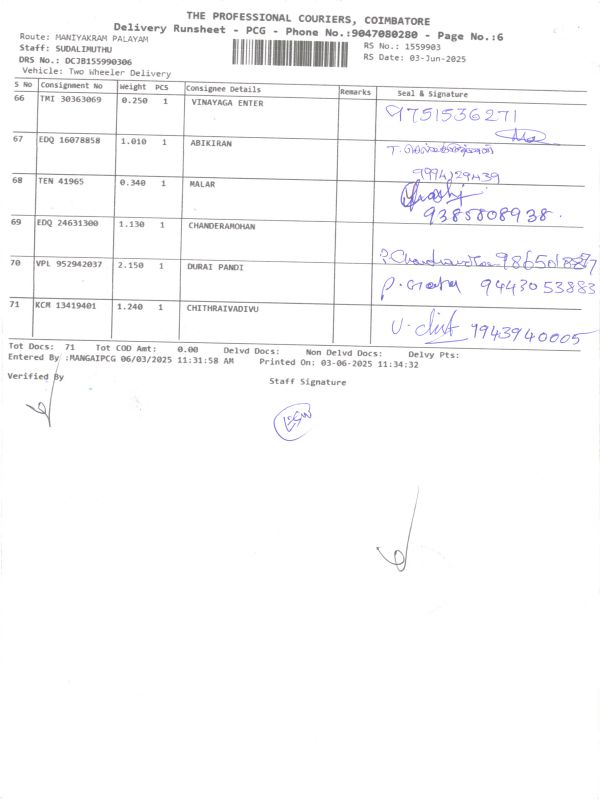 THE PROFESSIONAL COURIERS, COIMBATORE
Delivery Runsheet - PCG - Phone No.:9047080280 - Page No.:6
Route: MANIYAKRAM PALAYAM
RS No.: 1559903
Staff: SUDALIMUTHU
RS Date: 03-Jun-2025
DRS No.: DCJB155990306
Vehicle: Two Wheeler Delivery
S No Consignment No Weight PCS Consignee Details Remarks Seal & Signature
66 TMI 30363069 0.250 1 VINAYAGA ENTER 9751536271
67 EDQ 16078858 1.010 1 ABIKIRAN
68 TEN 41965 0.340 1 MALAR 9385808938.
69 EDQ 24631300 1.130 1 CHANDERAMOHAN
70 VPL 952942037 2.150 1 DURAI PANDI 9443053883
71 KCM 13419401 1.240 1 CHITHRAIVADIVU 7943940005
Tot Docs: 71 Tot COD Amt: 0.00 Delvd Docs: Non Delvd Docs: Delvy Pts:
Entered By :MANGAIPCG 06/03/2025 11:31:58 AM Printed On: 03-06-2025 11:34:32
Verified By
Staff Signature